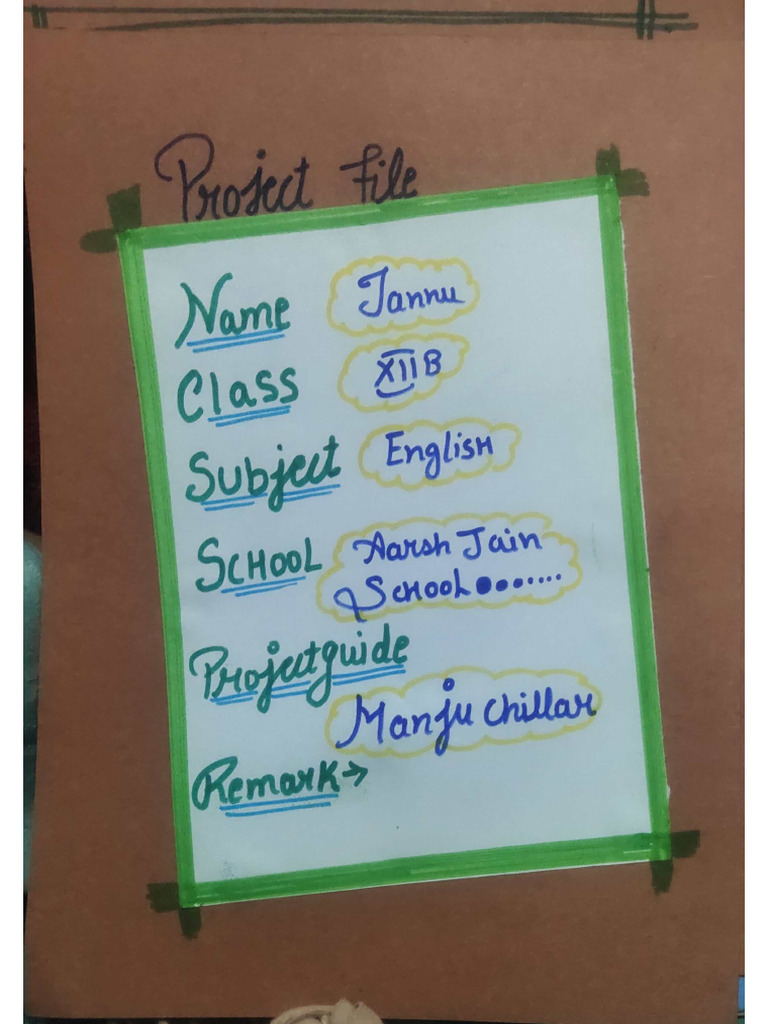 Project File
Name Tannu
Class XII B
Subject English
School Aarsh Jain
School.......
Projectguide
Manju Chillar
Remark→